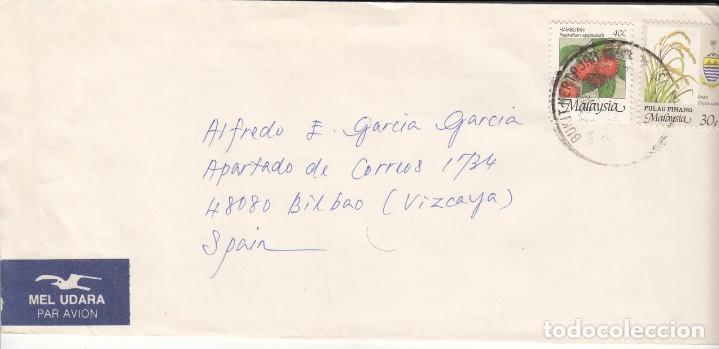 RAMBUTAN 40C
Nephelium lappaceum
Malaysia
PADI
PULAU PINANG
Malaysia 30¢
Alfredo E. Garcia Garcia
Apartado de Correos 1734
48080 Bilbao (Vizcaya)
Spain
MEL UDARA
PAR AVION
todocoleccion